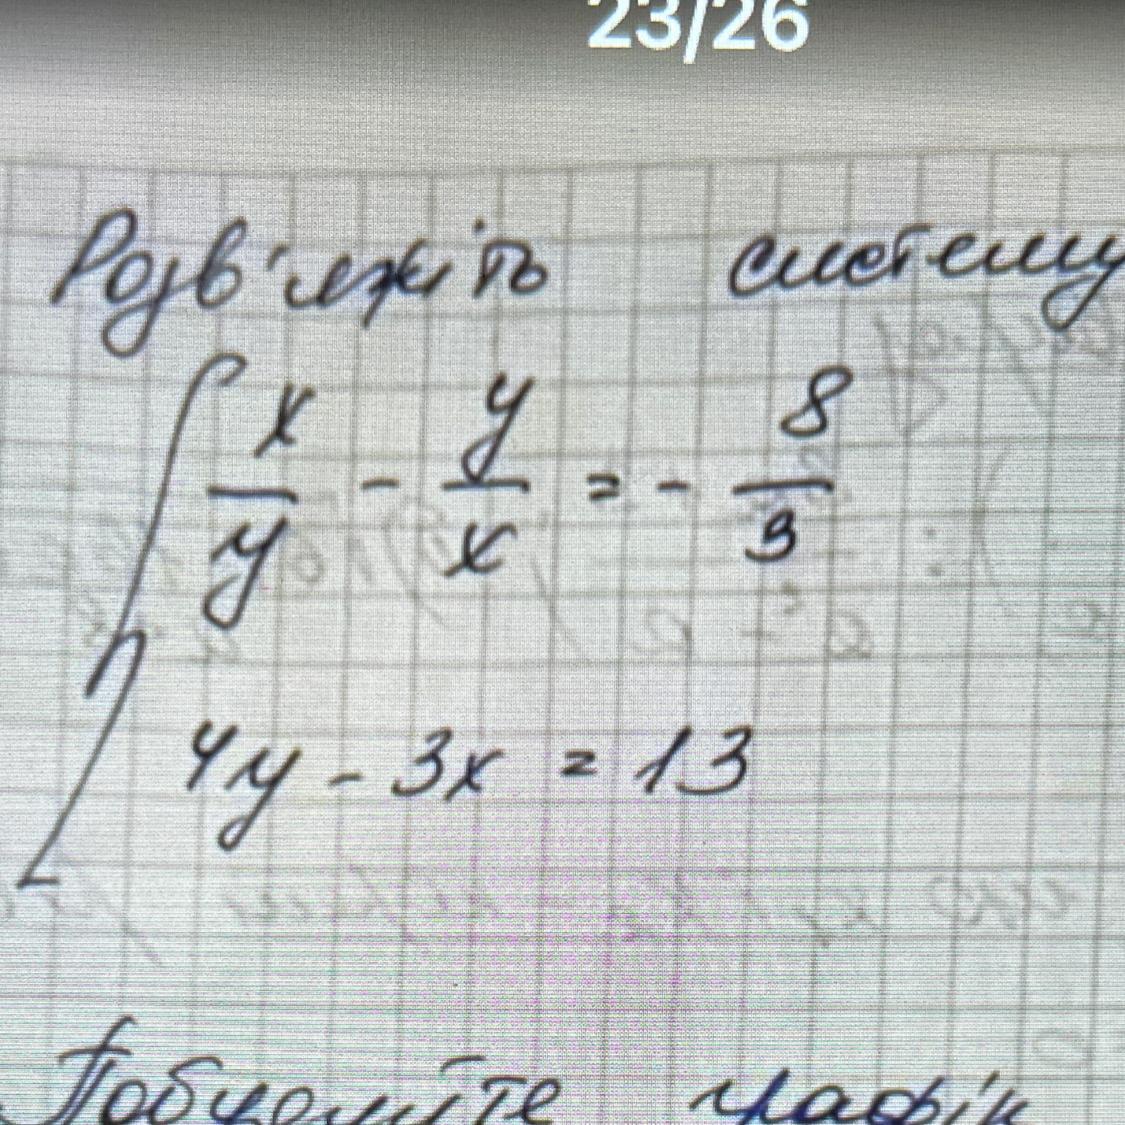 23/26
Розв'яжіть систему
x/y - y/x = - 8/3
4y - 3x = 13
Побудуйте графік